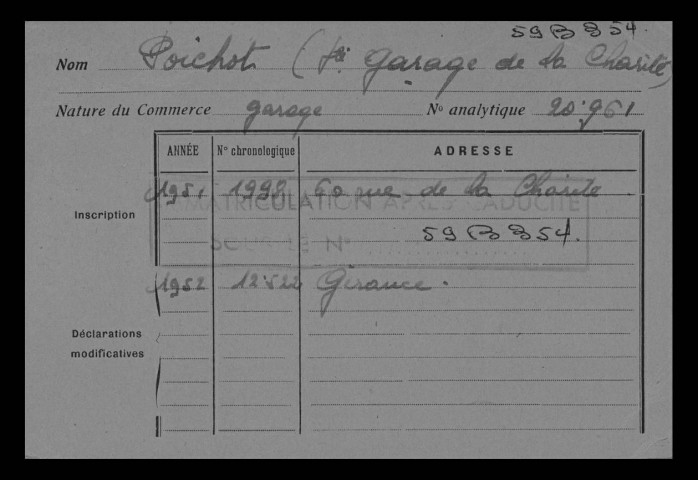 59 B 854.
Nom Poichot (Sté garage de la Charité)
Nature du Commerce garage No analytique 20.961
ANNÉE No chronologique ADRESSE
Inscription 1951 1998 60 rue de la Charité
IMMATRICULATION APRÈS CADUCITÉ
59 B 854.
SOUS LE N°
1952 12522 Gérance.
Déclarations
modificatives